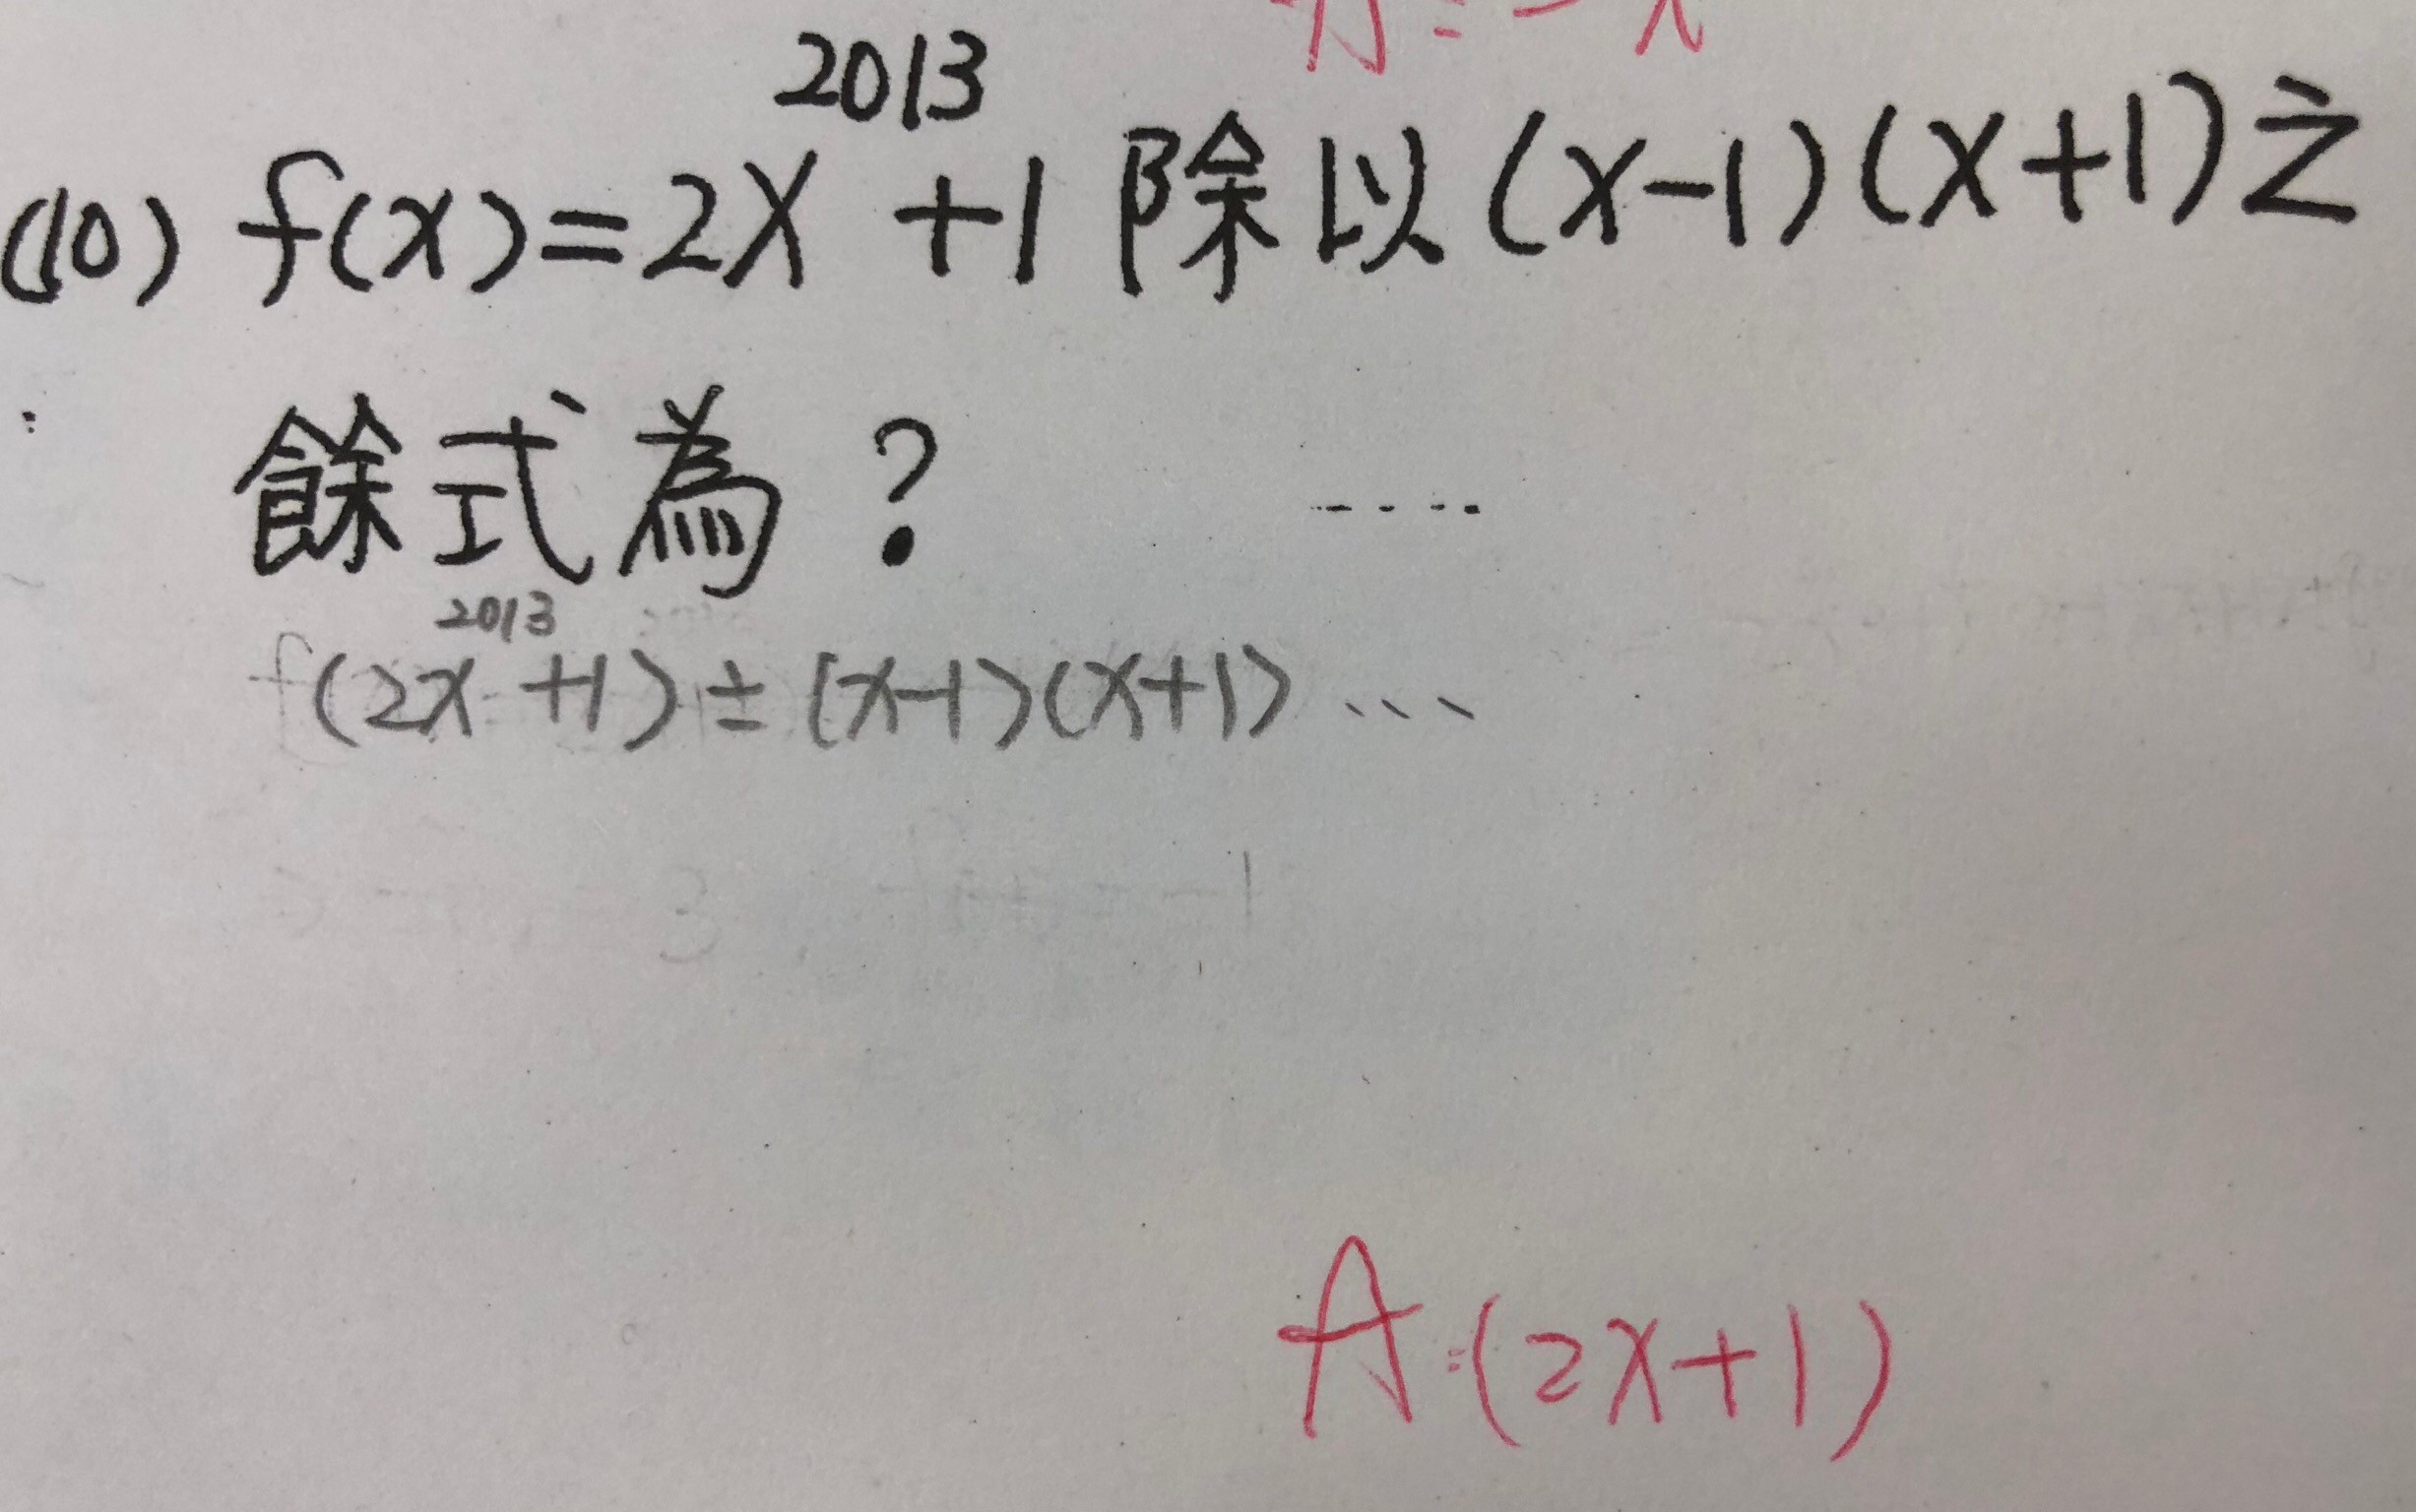 (10) f(x)=2x^2013 +1 除以(x-1)(x+1)之
餘式為?
f(2x^2013 +1)÷(x-1)(x+1)...
A:(2x+1)